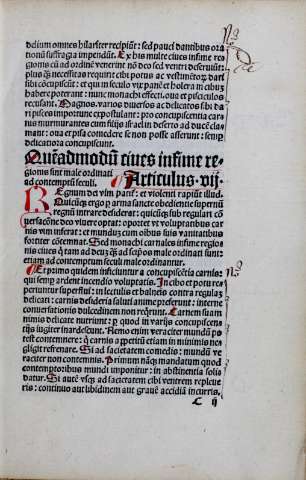 delium omnes hilariter recipiūt: sed pauci dantibus ora
tionū suffragia impendūt. Ex his multe ciues infime re
gionis cū ad ordinē venerint nō deo sed ventri deseruiūt:
plus ꝙ̄ necessitas requirit cibi potus ac vestimētorū dari
sibi cōcupiscūt: et qui in seculo vix panē et holera in cibuz
habere poterant: nunc monachi effecti, oua et pisciculos
recusant. Magnos. varios diuersos ac delicatos sibi da
ri pisces importune expostulant: pro concupiscentia car
nis murmurantes cum filijs israel in deserto ad ducē cla
mant: oua et pisa comedere se non posse asserunt: semper
delicatiora concupiscunt.
Quēadmodū ciues infime re
gionis sint male ordinati
ad contemptū seculi. Articulus .vij.
REgnum dei vim patit: et violenti rapiunt illud.
Quicūq; ergo per arma sancte obedientie supernū
regnū intrare desiderat: quicūq; sub regulari cō
uersacōne deo viuere optat: oportet vt voluptatibus car
nis vim inferat: et mundum cum oībus suis vanitatibus
fortiter cōtemnat. Sed monachi carnales infime regio
nis ciues
etiam ad contemptum seculi male ordinantur.
Et primo quidem inficiuntur a concupiscētia carnis:
qui semp ardent incendio voluptatis. In cibo et potu re
periuntur superflui: in lectulis et balneis contra regulaz
delicati: carnis desideria saluti anime preferunt: interne
conuersationis dulcedinem non reqrunt. Carnem suam
nimis delicate nutriunt: p quod in varijs concupiscen
tijs iugiter inardescunt. Nemo enim veraciter mundū po
test contemnere: qui carnis appetitū etiam in minimis ne
gligit refrenare. Si ad sacietatem comedis: mundū ve
raciter non contemnis. Primum nāq; mandatum quod
contemptoribus mundi imponitur: in abstinentia solis
datur. Si autē vsq; ad sacietatem cibi ventrem repleue
ris: continuo aut libidinem aut grauē accidiā incurris.